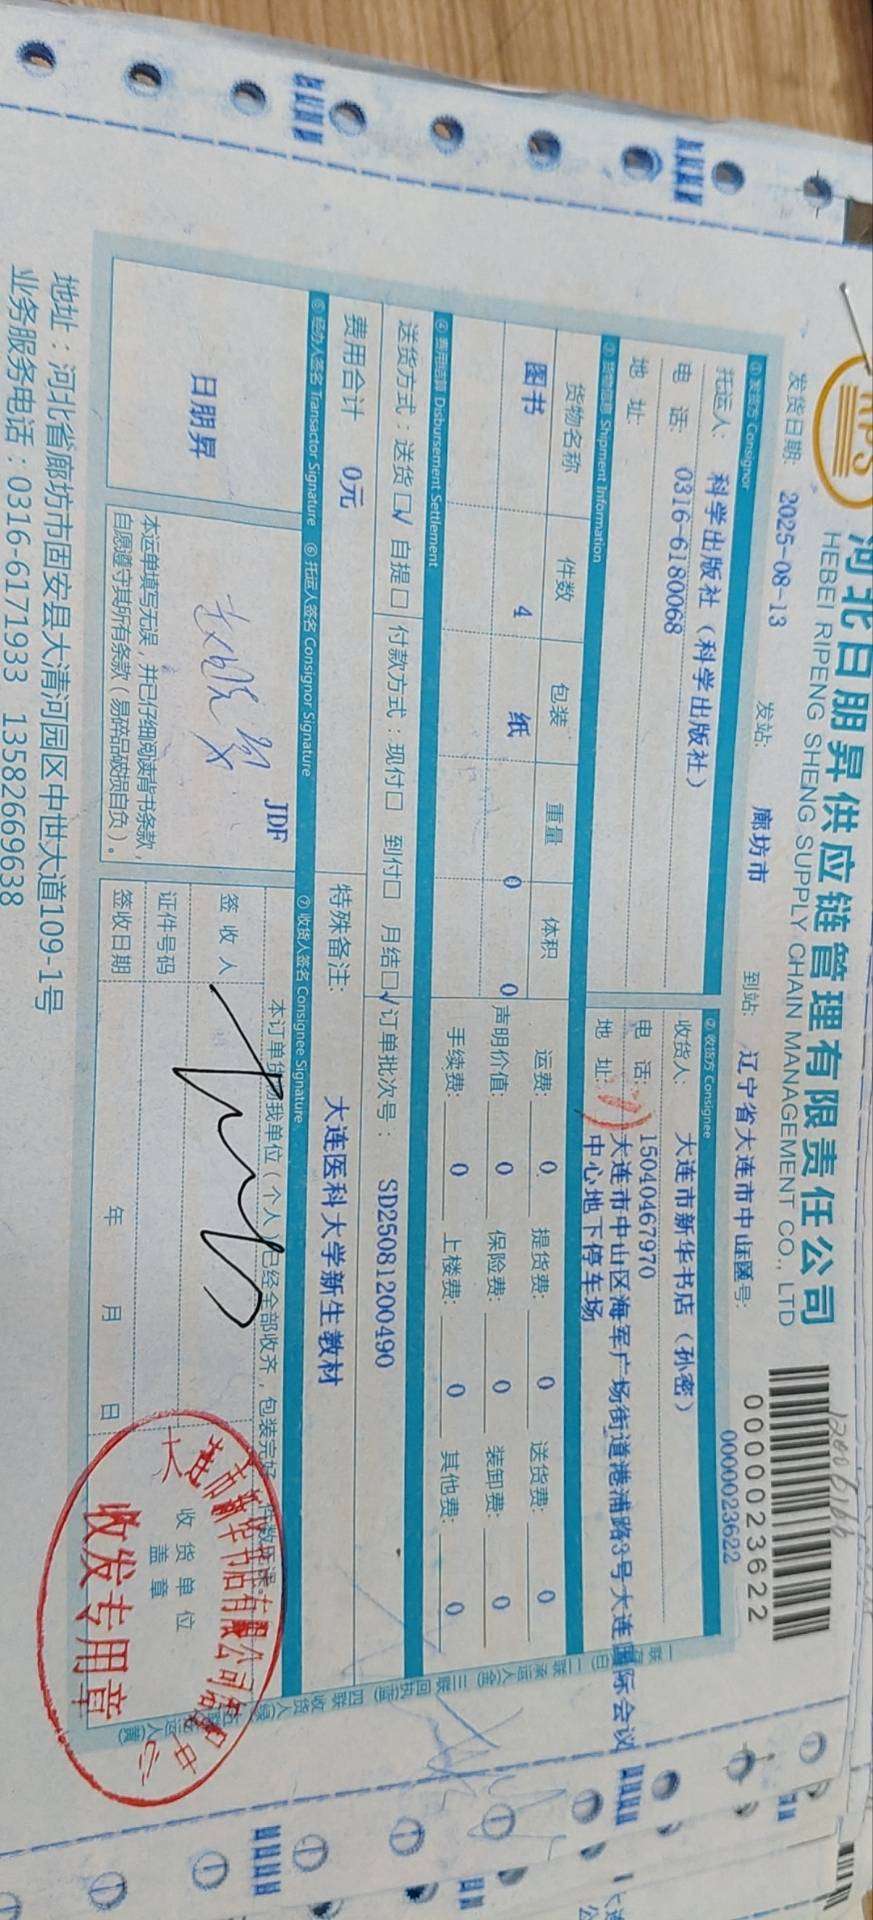 河北日朋昇供应链管理有限责任公司
HEBEI RIPENG SHENG SUPPLY CHAIN MANAGEMENT CO., LTD
0000023622
0000023622
发货日期: 2025-08-13 发站: 廊坊市 到站: 辽宁省大连市中山区 号:
① 发货方 Consignor
托运人: 科学出版社（科学出版社）
电 话: 0316-6180068
地 址:
② 收货方 Consignee
收货人: 大连市新华书店（孙密）
电 话: 15040467970
地 址: 大连市中山区海军广场街道港浦路3号大连国际会议
中心地下停车场
③ 货物信息 Shipment Information
货物名称 件数 包装 重量 体积
图书 4 纸 0 0
运费: 0 提货费: 0 送货费: 0
声明价值: 0 保险费: 0 装卸费: 0
手续费: 0 上楼费: 0 其他费: 0
④ 费用结算 Disbursement Settlement
送货方式：送货□√ 自提□ 付款方式：现付□ 到付□ 月结□√ 订单批次号： SD25081200490
费用合计 0元 特殊备注: 大连医科大学新生教材
⑤ 经办人签名 Transactor Signature ⑥ 托运人签名 Consignor Signature ⑦ 收货人签名 Consignee Signature
日朋昇
JDF
本运单填写无误，并已仔细阅读背书条款，
自愿遵守其所有条款（易碎品破损自负）。
签 收 人
证件号码
签收日期 年 月 日
收 货 单 位
盖 章
收发专用章
地址：河北省廊坊市固安县大清河园区中世大道109-1号
业务服务电话：0316-6171933 13582669638